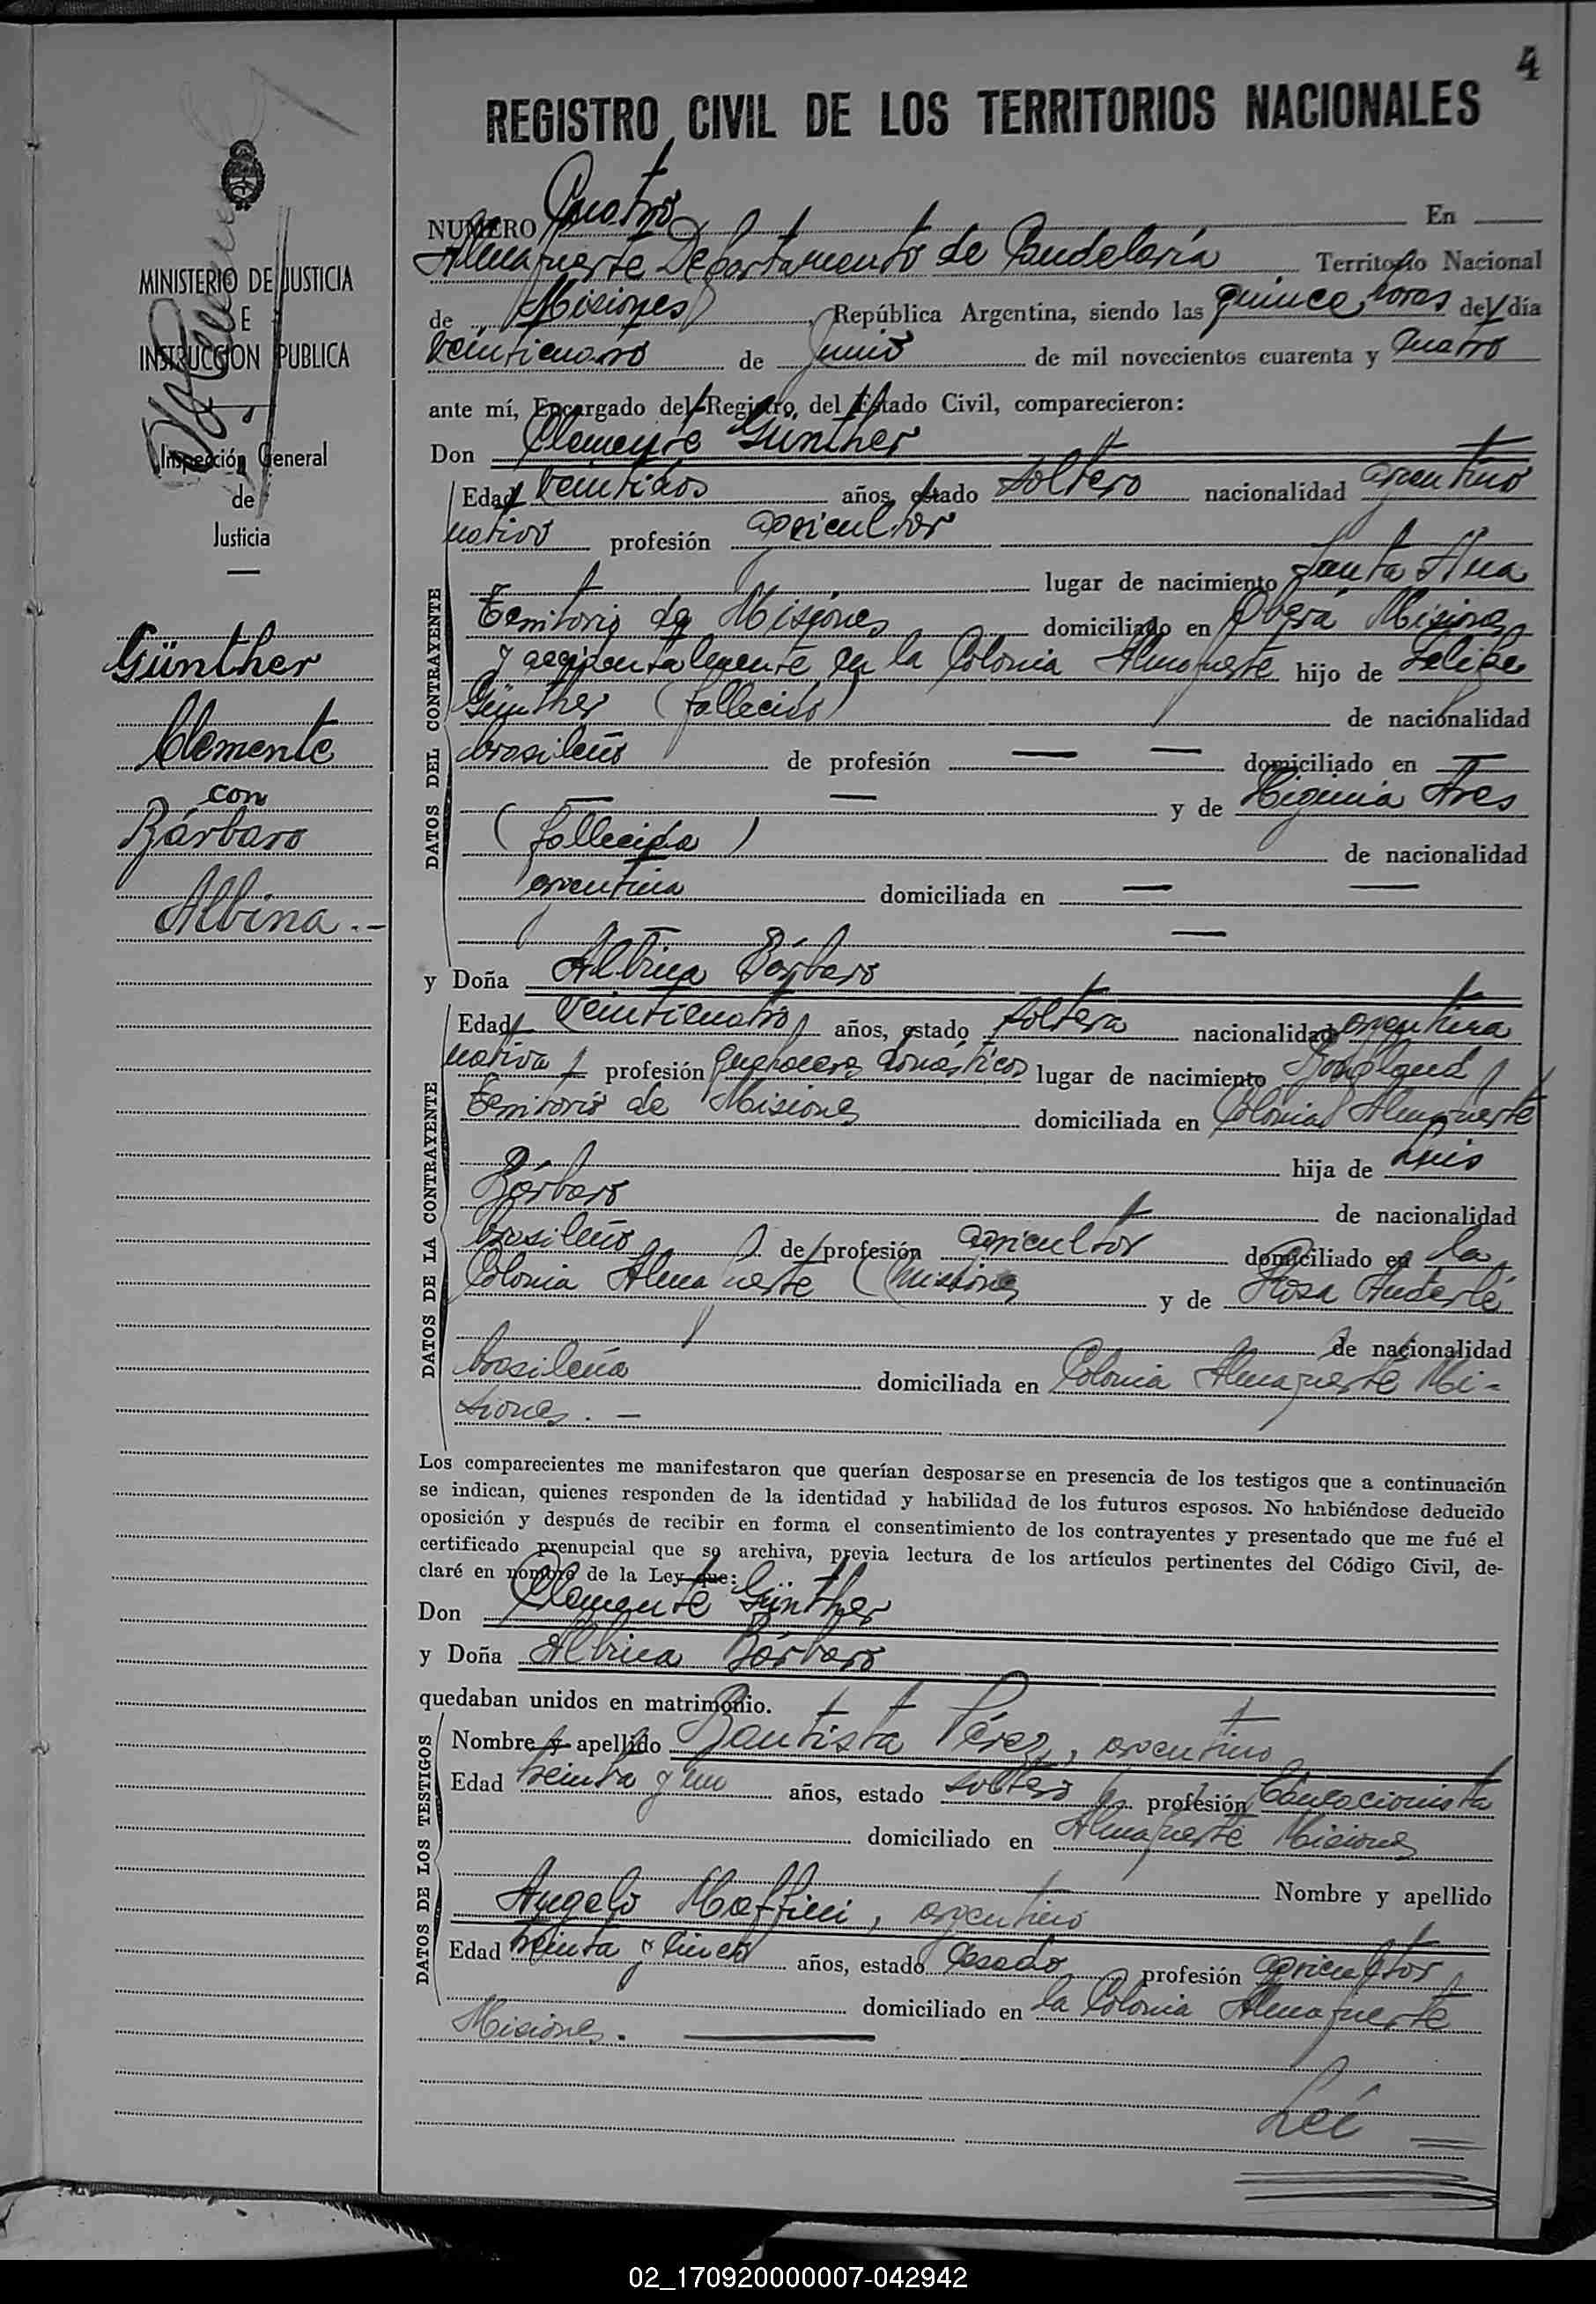 4
REGISTRO CIVIL DE LOS TERRITORIOS NACIONALES
NUMERO Cuatro En
Almafuerte Departamento de Candelaria Territorio Nacional
de Misiones, República Argentina, siendo las quince horas del día
veinticuatro de Junio de mil novecientos cuarenta y cuatro
ante mí, Encargado del Registro del Estado Civil, comparecieron:
Don Clemente Günther
Edad veintidos años, estado soltero nacionalidad argentino
nativo profesión agricultor
lugar de nacimiento Santa Ana
Territorio de Misiones domiciliado en Oberá Misiones
y accidentalmente en la Colonia Almafuerte hijo de Felipe
Günther (fallecido) de nacionalidad
brasileño de profesión — — domiciliado en —
— — y de Higinia Ares
(fallecida) de nacionalidad
argentina domiciliada en — —
— —
y Doña Albina Bárbaro
Edad veinticuatro años, estado soltera nacionalidad argentina
nativa profesión quehaceres domésticos lugar de nacimiento Bonpland
Territorio de Misiones domiciliada en Colonia Almafuerte
hija de Luis
Bárbaro de nacionalidad
brasileño de profesión agricultor domiciliado en la
Colonia Almafuerte (Misiones y de Rosa Anderle
de nacionalidad
brasileña domiciliada en Colonia Almafuerte Mi-
siones. —
Los comparecientes me manifestaron que querían desposarse en presencia de los testigos que a continuación
se indican, quienes responden de la identidad y habilidad de los futuros esposos. No habiéndose deducido
oposición y después de recibir en forma el consentimiento de los contrayentes y presentado que me fué el
certificado prenupcial que se archiva, previa lectura de los artículos pertinentes del Código Civil, de-
claré en nombre de la Ley que:
Don Clemente Günther
y Doña Albina Bárbaro
quedaban unidos en matrimonio.
Nombre y apellido Bautista Pérez, argentino
Edad treinta y un años, estado soltero profesión Educacionista
domiciliado en Almafuerte Misiones
Nombre y apellido
Angelo Maffini, argentino
Edad treinta y cinco años, estado casado profesión agricultor
domiciliado en la Colonia Almafuerte
Misiones.
Leí
DATOS DEL CONTRAYENTE
DATOS DE LA CONTRAYENTE
DATOS DE LOS TESTIGOS
MINISTERIO DE JUSTICIA
E
INSTRUCCION PUBLICA
Inspección General
de
Justicia
Günther
Clemente
con
Bárbaro
Albina.-
02_170920000007-042942